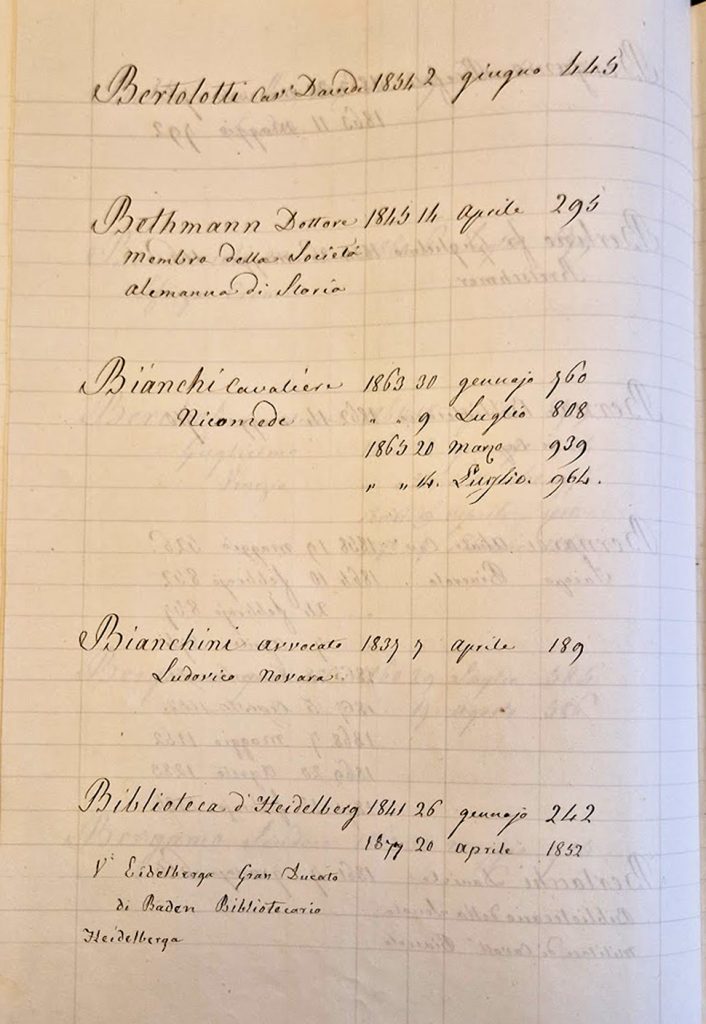 Bertolotti Cav.e Davide 1854 2 giugno 445
Bethmann Dottore 1845 14 Aprile 295
membro della Società
alemanna di Storia
Bianchi Cavaliere 1863 30 gennajo 760
Nicomede " " 9 Luglio 808
1865 20 Marzo 939
" " 14. Luglio. 964.
Bianchini avvocato 1837 7 Aprile 189
Ludovico Novara.
Biblioteca d'Heidelberg 1841 26 gennajo 242
1877 20 aprile 1852
Vi Eidelberga Gran Ducato
di Baden Bibliotecario
Heidelberga